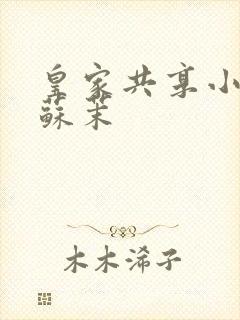 皇家共享小
蘇茉
木木浠子